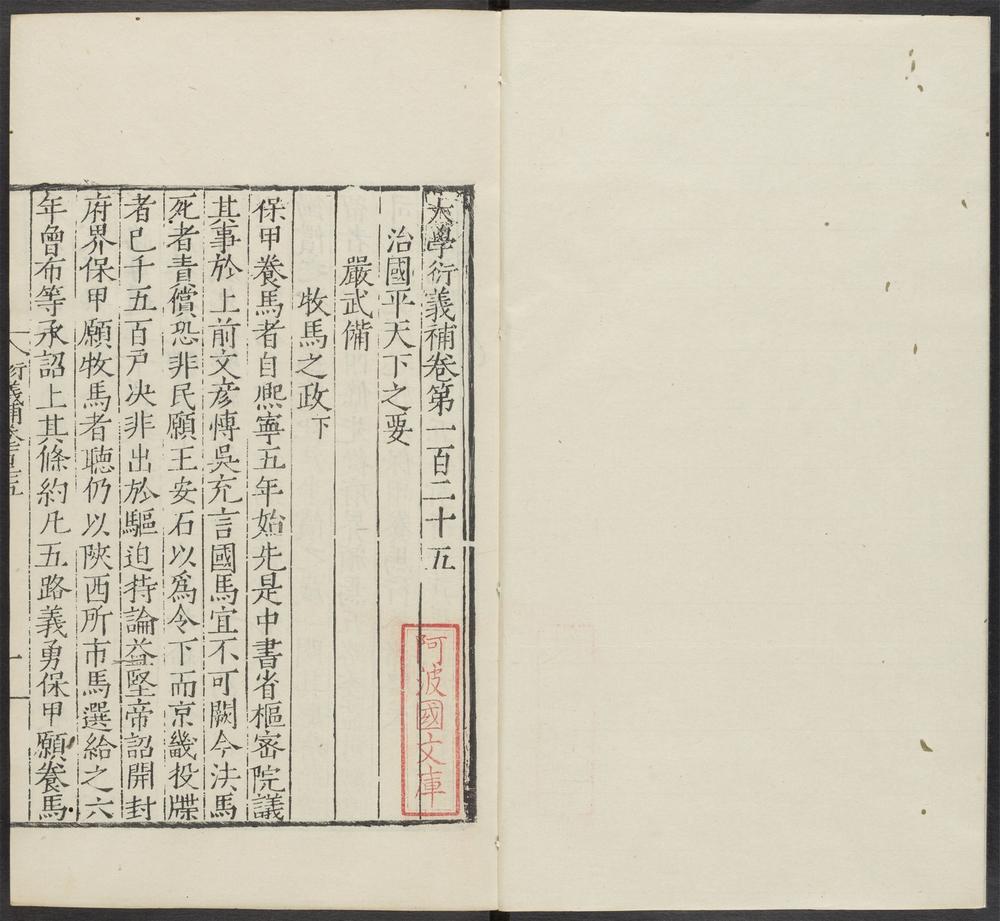 大學衍義補卷第一百二十五
治國平天下之要
嚴武備
牧馬之政下
保甲養馬者自熈寧五年始先是中書省樞密院議
其事於上前文彦愽吳充言國馬宜不可闕今法馬
死者責償恐非民願王安石以爲令下而京畿投牒
者已千五百戸决非出於驅迫持論益堅帝詔開封
府界保甲願牧馬者聽仍以陜西所市馬選給之六
年曾布等承詔上其條約凡五路義勇保甲願養馬
阿波國文庫